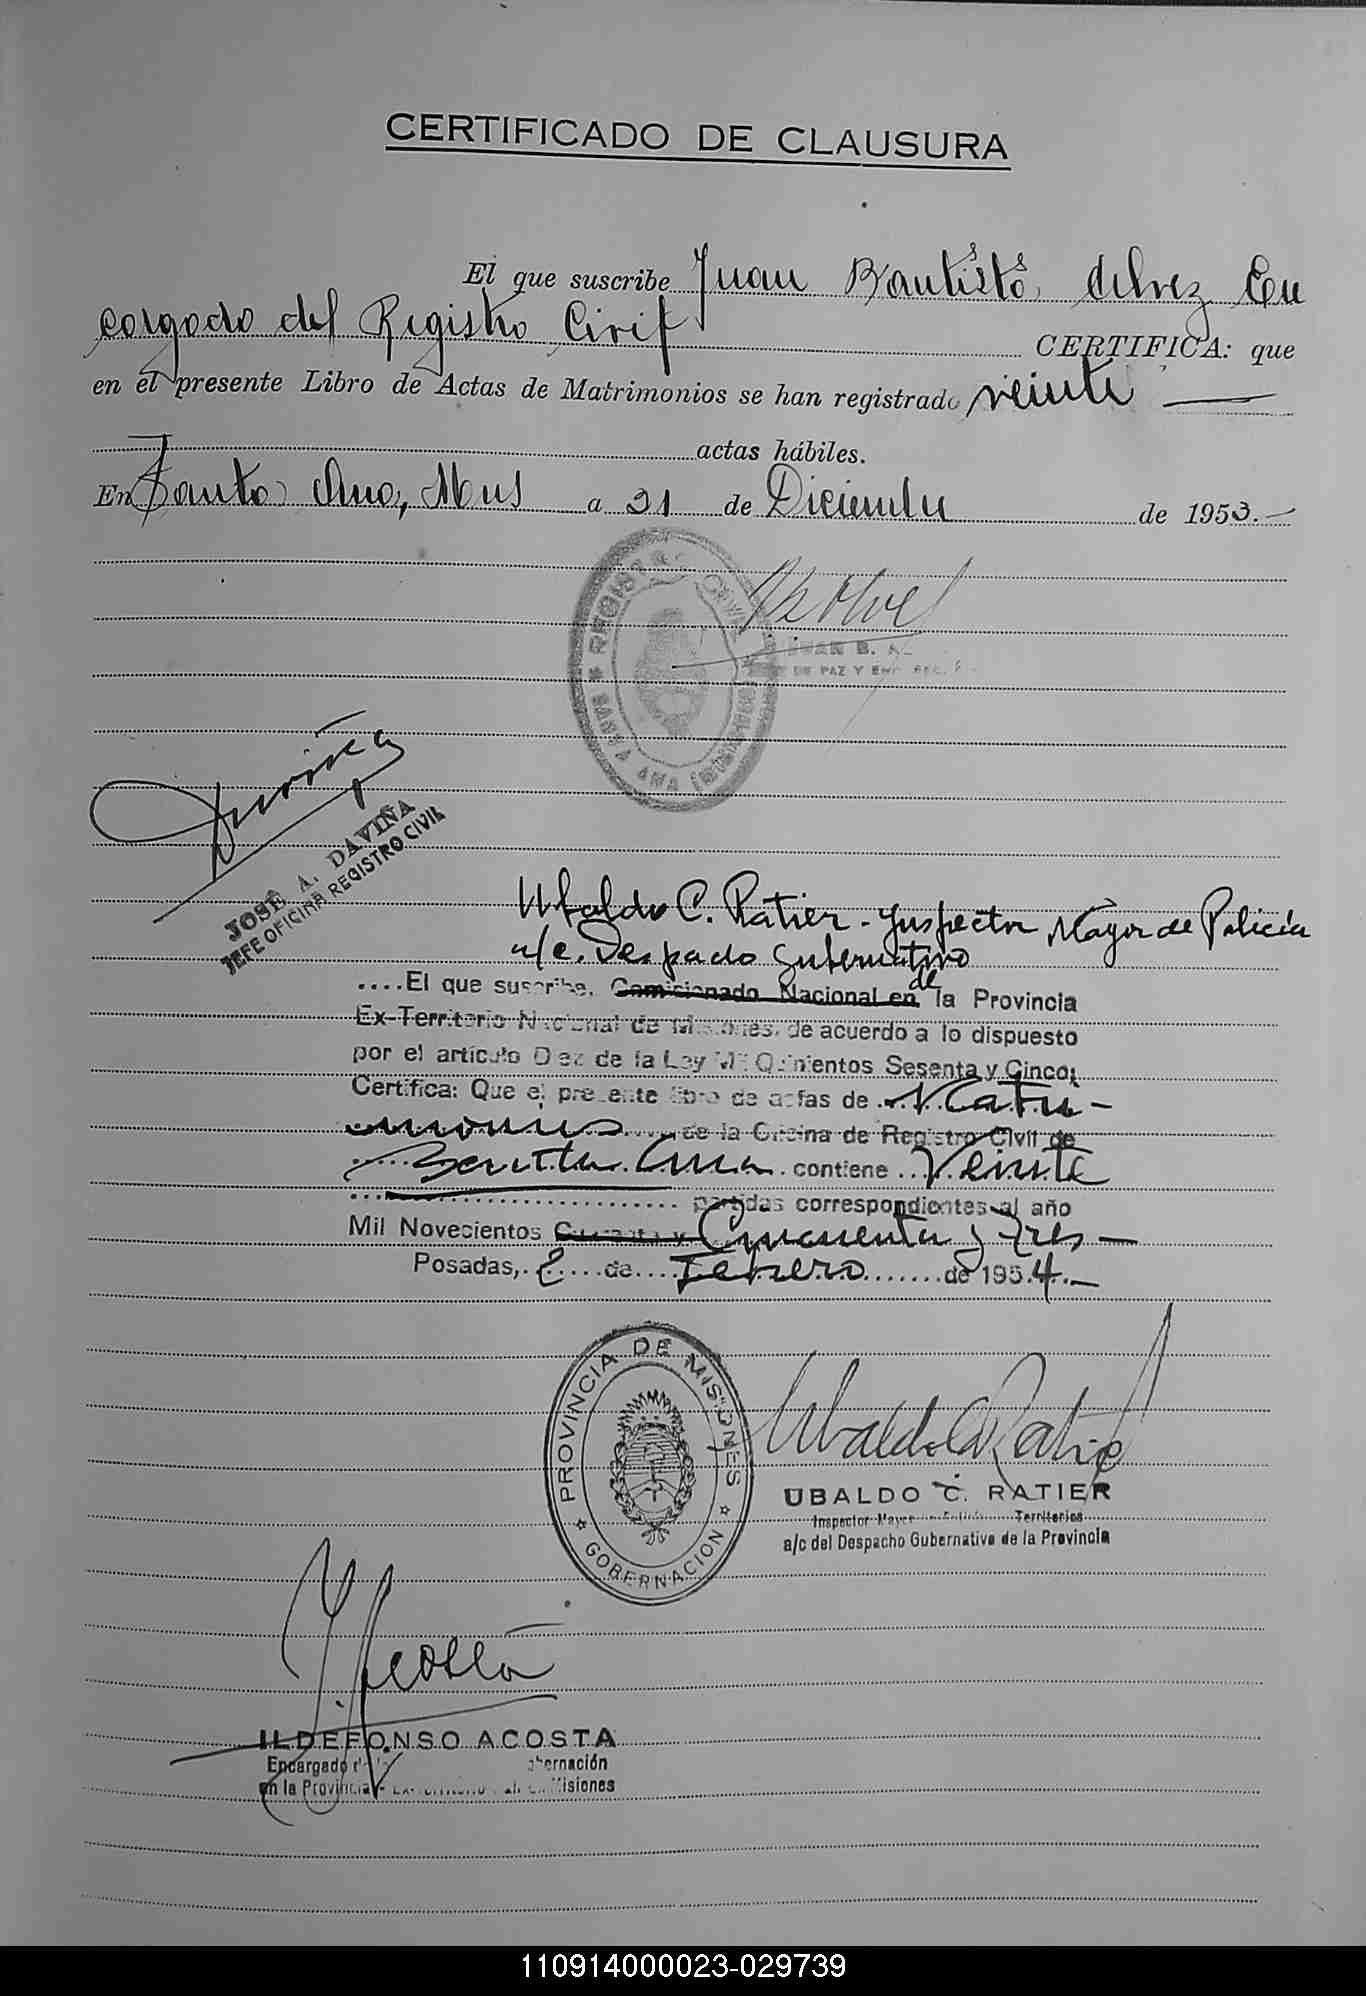 CERTIFICADO DE CLAUSURA
El que suscribe Juan Bautista Alvez En
cargado del Registro Civil
CERTIFICA: que
en el presente Libro de Actas de Matrimonios se han registrado veinte —
actas hábiles.
En Santa Ana, Mnes a 31 de Diciembre de 1953.-
REGISTRO CIVIL
SANTA ANA (MISIONES)
JUAN B. A
DE PAZ Y ENC. REG.
Daviña
JOSÉ A. DAVIÑA
JEFE OFICINA REGISTRO CIVIL
Ubaldo C. Ratier - Inspector Mayor de Policía
a/c. Despacho Gubernativo
....El que suscribe, Comisionado Nacional en de la Provincia
Ex-Territorio Nacional de Misiones, de acuerdo a lo dispuesto
por el artículo Diez de la Ley Nº Quinientos Sesenta y Cinco;
Certifica: Que el presente libro de actas de Matri-
monios de la Oficina de Registro Civil de
Santa Ana contiene Veinte
partidas correspondientes al año
Mil Novecientos Cuarenta y Cincuenta y Tres —
Posadas, 2 de Febrero de 1954.-
PROVINCIA DE MISIONES
GOBERNACION
Ubaldo C. Ratier
UBALDO C. RATIER
Inspector Mayor Territorios
a/c del Despacho Gubernativo de la Provincia
I. Acosta
ILDEFONSO ACOSTA
Encargado Gobernación
en la Provincia Ex-Territorio Misiones
110914000023-029739